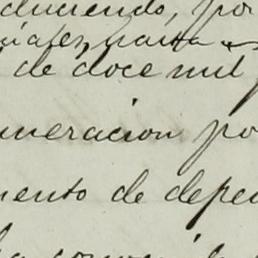 duciendo, por
viajes, hasta
de doce mil
neracion po
mento de depe